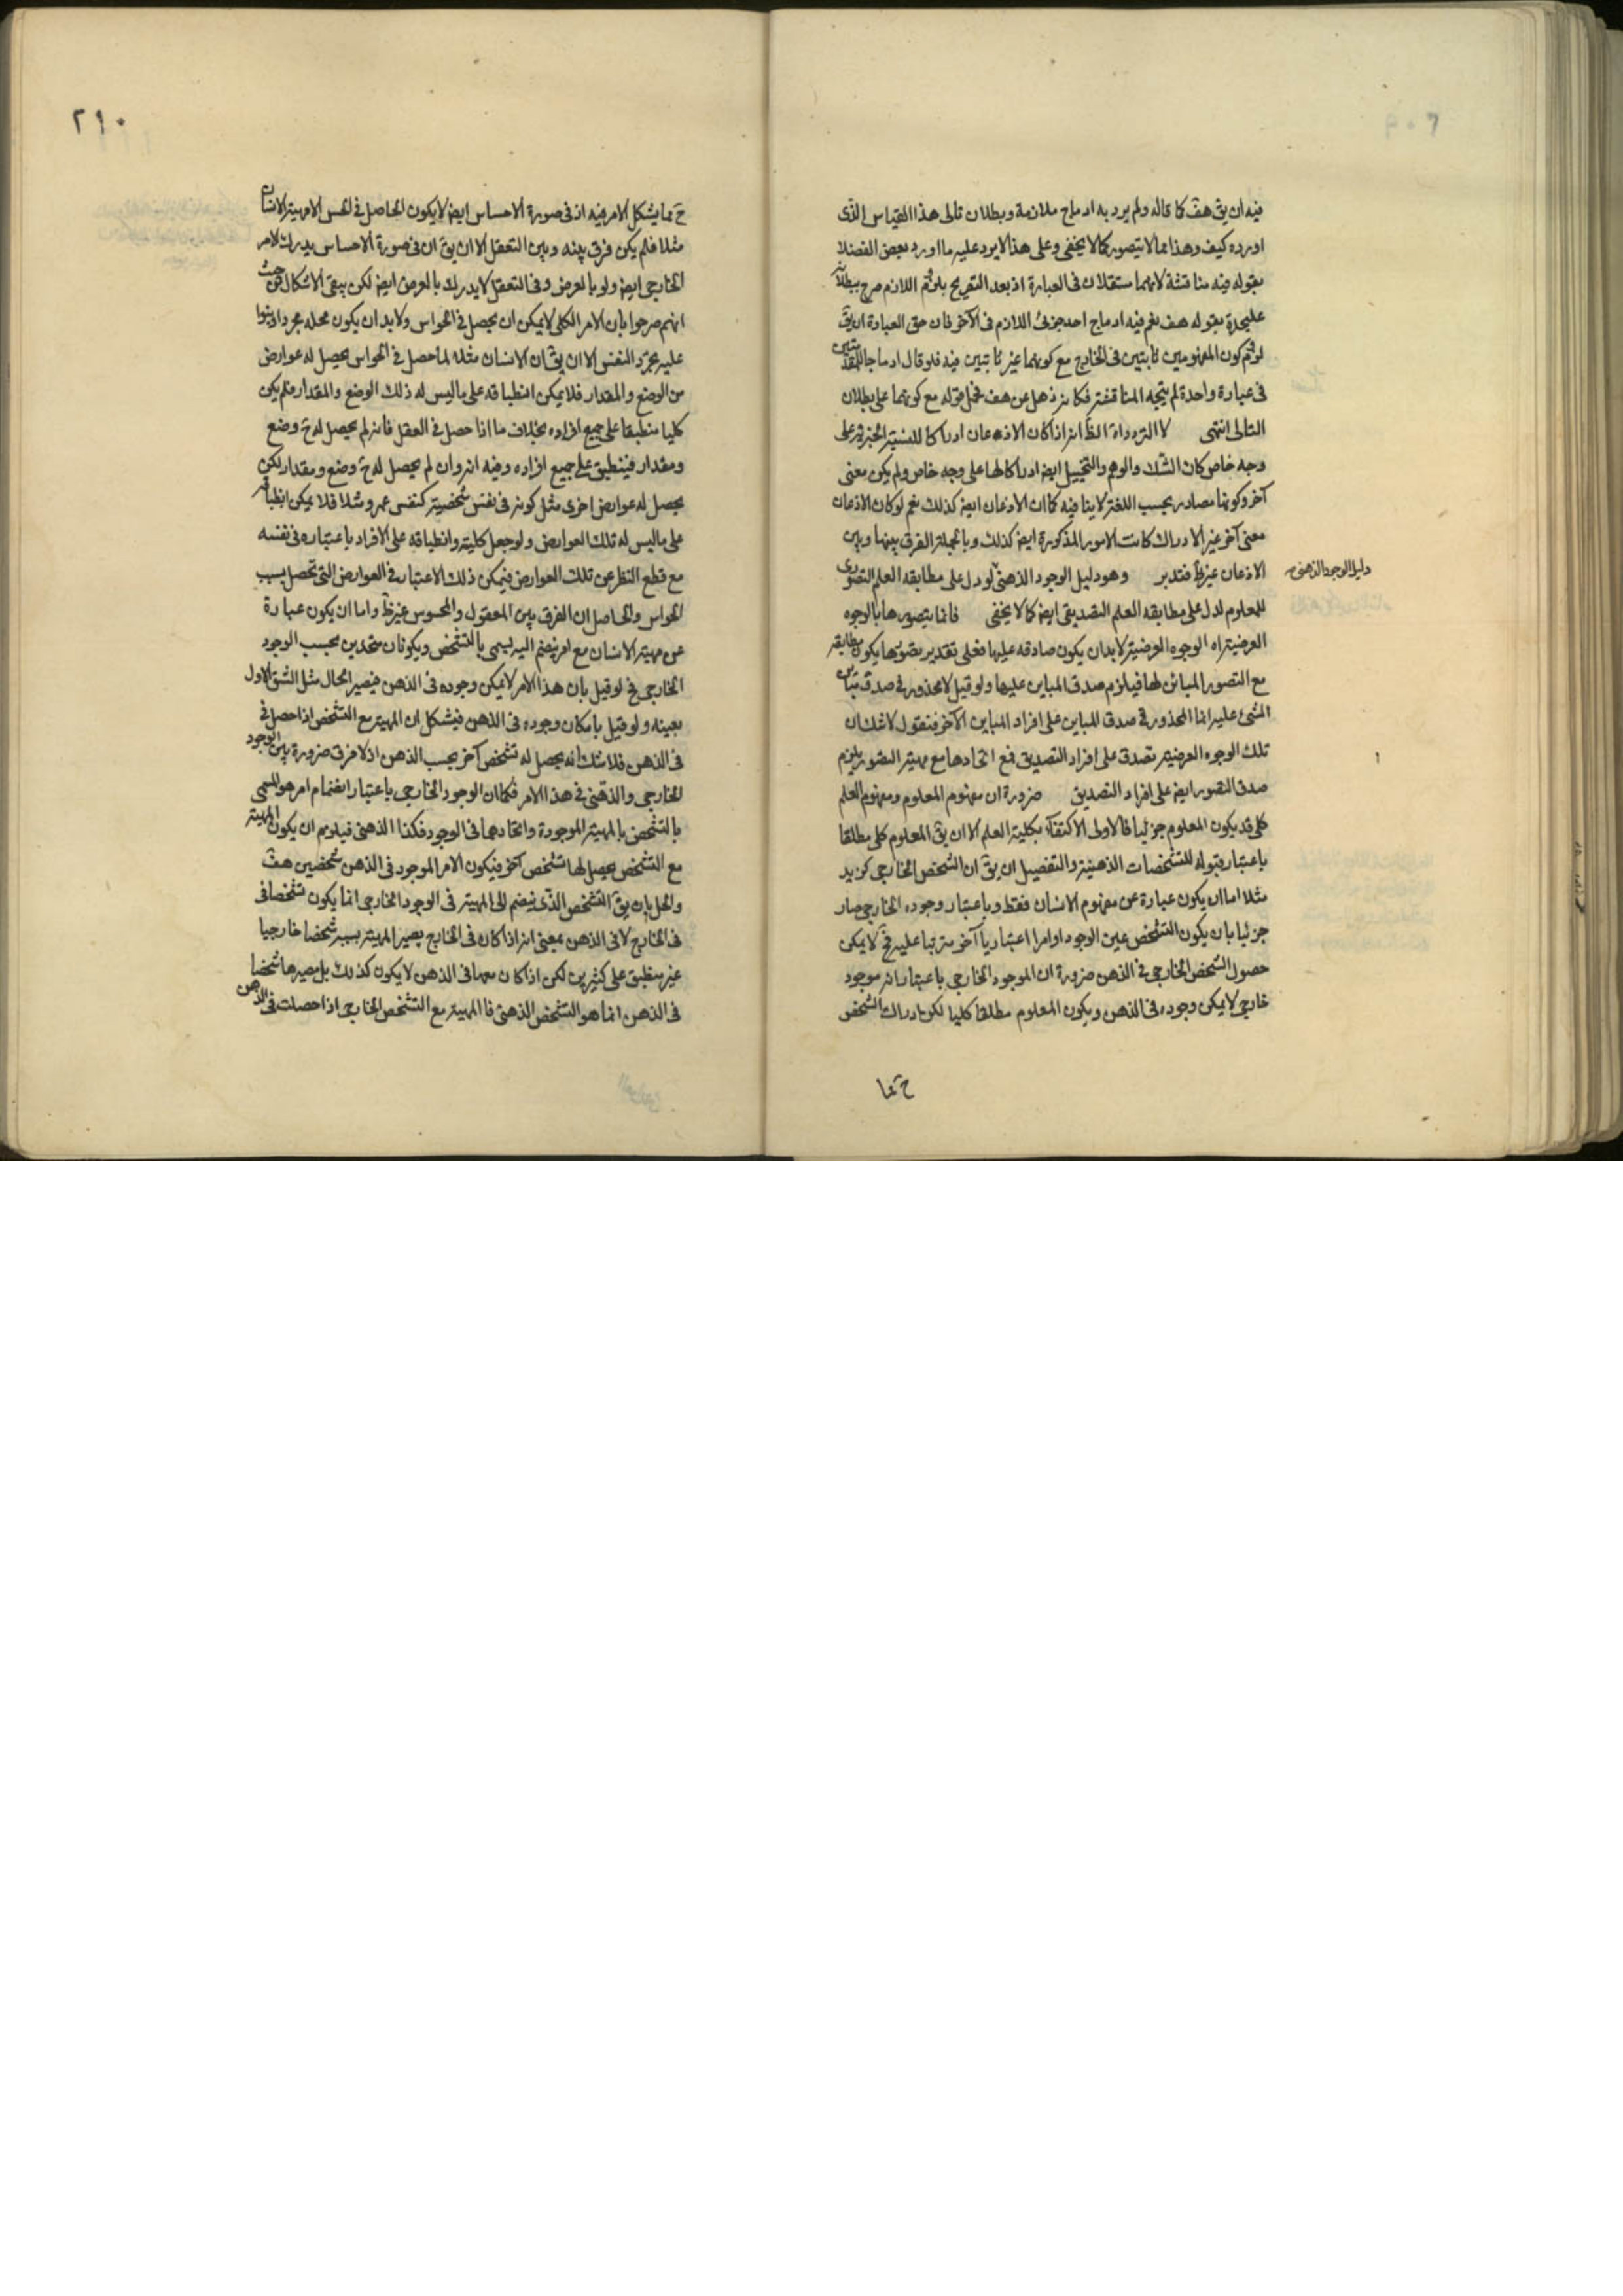 فيه ان يق هف كما قاله ولم يرد به ادماج ملازمة وبطلان تالى هذا القياس الذى
اورده كيف وهذا مما لا يتصور كما لا يخفى وعلى هذا لا يرد عليه ما اورد بعض الفضلا
بقوله فيه مناقشة لانهما مستقلان فى العبارة اذ بعد التصريح بلزوم اللازم صرح ببطلانه
عليحدة بقوله هف نعم فيه ادماج احد جزئى اللازم فى الآخر فان حق العبارة ان يق
لزم كون المفهومين ثابتين فى الخارج مع كونهما غير ثابتين فيه فلو قال ادماجا للمقدمتين
فى عبارة واحدة لم يتجه المناقشة فكانه ذهل عن هف فحمل قوله مع كونهما على بطلان
التالى انتهى لا التردد اة الظ انه اذا كان الاذعان ادراكا للنسبة الخبرية على
وجه خاص كان الشك والوهم والتخييل ايض ادراكا لها على وجه خاص ولم يكن معنى
آخر وكونها مصادر بحسب اللغة لا ينافيه كما ان الاذعان ايض كذلك نعم لو كان الاذعان
معنى آخر غير الادراك كانت الامور المذكورة ايض كذلك وبالجملة الفرق بينها وبين
الاذعان غير ظ فتدبر وهو دليل الوجود الذهنى لو دل على مطابقه العلم التصورى
دليل الوجود الذهنى
للمعلوم لدل على مطابقه العلم التصديقى ايض كما لا يخفى فانما يتصورها بالوجوه
العرضية اه الوجوه العرضية لا بد ان يكون صادقه عليها فعلى تقدير تصورها يكون مطابقه
مع التصور المبائن لها فيلزم صدق المباين عليها ولو قيل لا محذور فى صدق مباين
الشئ عليه انما المحذور فى صدق المباين على افراد المباين الآخر فنقول لا شك ان
تلك الوجوه العرضيه تصدق على افراد التصديق فمع اتحادها مع مهية التصور يلزم
صدق التصور ايض على افراد التصديق ضرورة ان مفهوم المعلوم ومفهوم العلم
كلى قد يكون المعلوم جزئيا فالاولى الاكتفاء بكلية العلم الا ان يق المعلوم كلى مطلقا
باعتبار قبوله للتشخصات الذهنية والتفصيل ان يق ان الشخص الخارجى كزيد
مثلا اما ان يكون عبارة عن مفهوم الانسان فقط وباعتبار وجوده الخارجى صار
جزئيا بان يكون التشخص عين الوجود او امرا اعتباريا آخر مترتبا عليه فح لا يمكن
حصول الشخص الخارجى فى الذهن ضرورة ان الموجود الخارجى باعتبار انه موجود
خارجى لا يمكن وجوده فى الذهن ويكون المعلوم مطلقا كليا لكن ادراك الشخص
ح مما
٢١٠
ح مما يشكل الامر فيه اذ فى صورة الاحساس ايض لا يكون الحاصل فى الحس الا مهية الانسان
مثلا فلم يكن فرق بينه وبين التعقل الا ان يق ان فى صورة الاحساس يدرك الامر
الخارجى ايض ولو بالعرض وفى التعقل لا يدرك بالعرض ايض لكن يبقى الاشكال من حيث
انهم صرحوا بان الامر الكلى لا يمكن ان يحصل فى الحواس ولا بد ان يكون محله مجردا وبنوا
عليه تجرد النفس الا ان يق ان الانسان مثلا لما حصل فى الحواس يحصل له عوارض
من الوضع والمقدار فلا يمكن انطباقه على ما ليس له ذلك الوضع والمقدار فلم يكن
كليا منطبقا على جميع افراده بخلاف ما اذا حصل فى العقل فانه لم يحصل له ح وضع
ومقدار فينطبق على جميع افراده وفيه انه وان لم يحصل له ح وضع ومقدار لكن
يحصل له عوارض اخرى مثل كونه فى نفس شخصية كنفس عمرو مثلا فلا يمكن انطباقه
على ما ليس له تلك العوارض ولو جعل كليته وانطباقه على الافراد باعتباره فى نفسه
مع قطع النظر عن تلك العوارض فيمكن ذلك الاعتبار فى العوارض التى تحصل بسبب
الحواس والحاصل ان الفرق بين المعقول والمحسوس غير ظ واما ان يكون عبارة
عن مهية الانسان مع امر ينضم اليه يسمى بالتشخص ويكونان متحدين بحسب الوجود
الخارجى فح لو قيل بان هذا الامر لا يمكن وجوده فى الذهن فيصير الحال مثل الشق الاول
بعينه ولو قيل بامكان وجوده فى الذهن فيشكل ان المهية مع التشخص اذا حصل فى
فى الذهن فلا شك انه يحصل له تشخص آخر بحسب الذهن اذ لا فرق ضرورة بين الوجود
الخارجى والذهنى فى هذا الامر فكما ان الوجود الخارجى باعتبار انضمام امر هو المسمى
بالتشخص بالمهية الموجودة واتحادهما فى الوجود فكذا الذهنى فيلزم ان يكون المهية
مع التشخص يحصل لها تشخص آخر فيكون الامر الموجود فى الذهن شخصين هف
والحل بان يق التشخص الذى ينضم الى المهية فى الوجود الخارجى انما يكون تشخصا فى
فى الخارج لا فى الذهن بمعنى انه اذا كان فى الخارج يصير المهية بسببه شخصا خارجيا
غير منطبق على كثيرين لكن اذا كان معها فى الذهن لا يكون كذلك بل مصيرها شخصا
فى الذهن انما هو التشخص الذهنى فالمهية مع التشخص الخارجى اذا حصلت فى الذهن